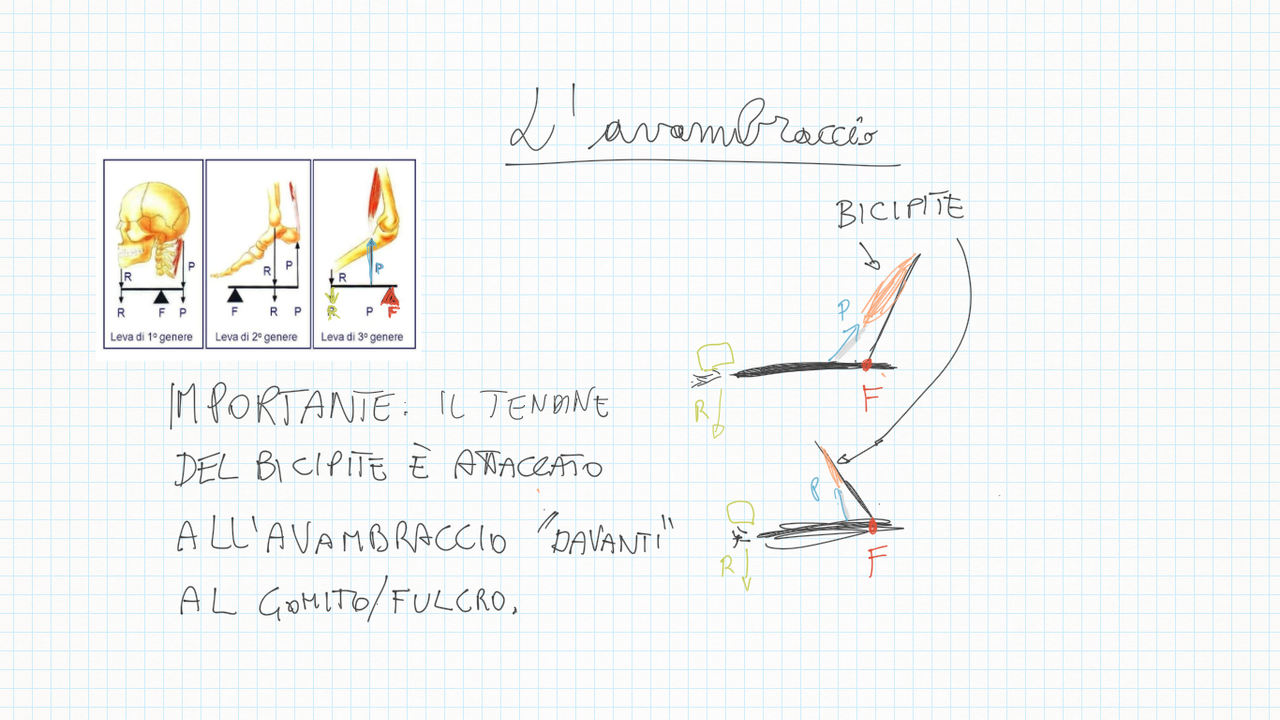 L'avambraccio
R
P
R
F
P
Leva di 1º genere
R
P
F
R
P
Leva di 2º genere
R
P
R
P
F
Leva di 3º genere
BICIPITE
P
R
F
IMPORTANTE: IL TENDINE
DEL BICIPITE È ATTACCATO
ALL'AVAMBRACCIO "DAVANTI"
AL GOMITO/FULCRO.
P
R
F